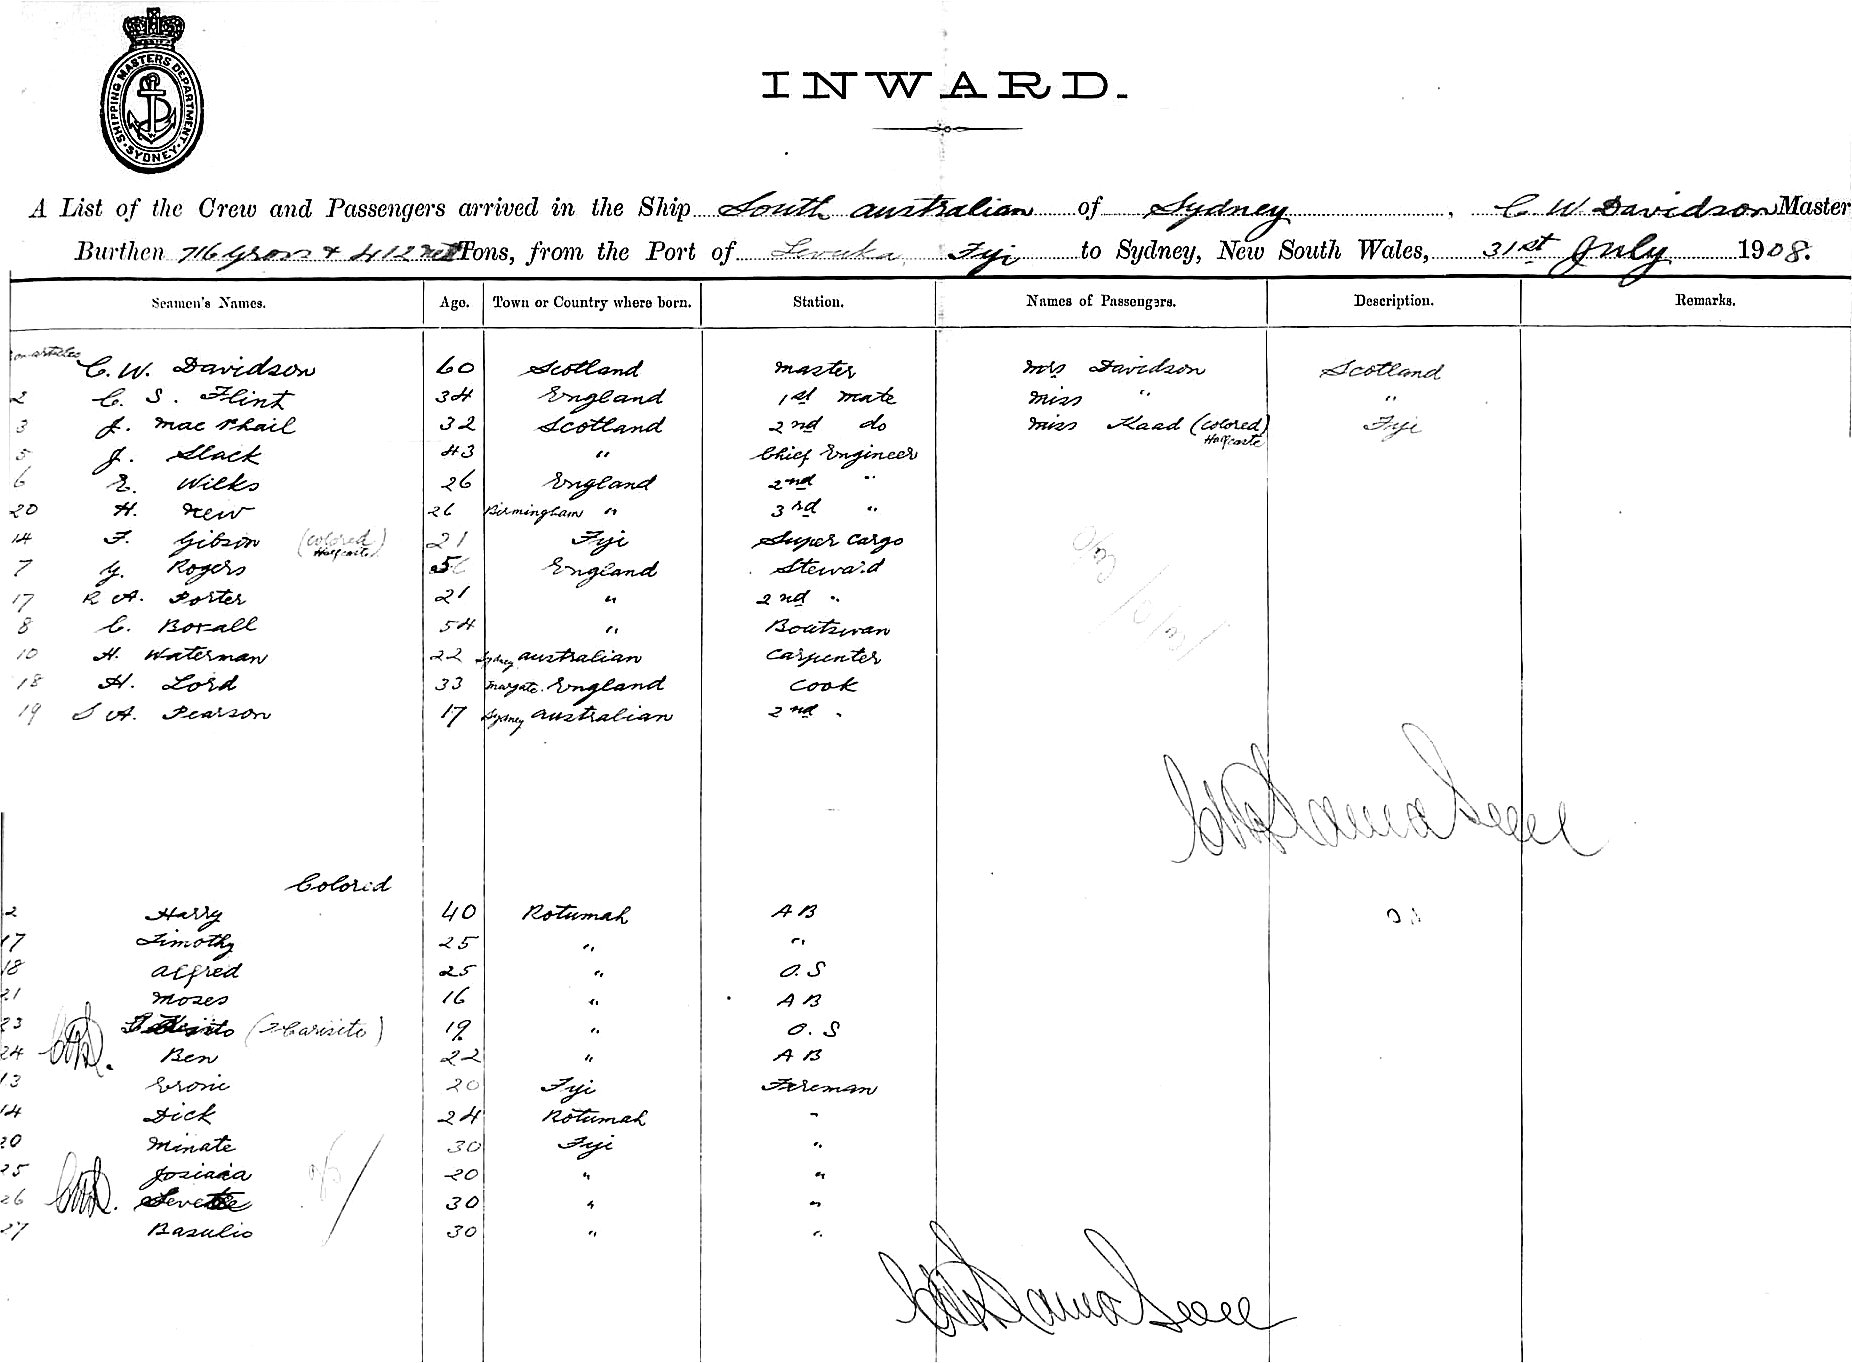 SHIPPING MASTERS DEPARTMENT
SYDNEY
INWARD.
A List of the Crew and Passengers arrived in the Ship South Australian of Sydney, C W Davidson Master
Burthen 716 Gross & 412 net Tons, from the Port of Levuka Fiji to Sydney, New South Wales, 31st July 1908.
Seamen's Names. Age. Town or Country where born. Station. Names of Passengers. Description. Remarks.
on articles
C. W. Davidson 60 Scotland Master Mrs Davidson Scotland
2 C. S. Flint 34 England 1st Mate Miss " "
3 J. Mac Phail 32 Scotland 2nd do Miss Kaad (Colored) Fiji
Halfcaste
5 J. Slack 43 " Chief Engineer
6 E. Wilks 26 England 2nd "
20 H. New 26 Birmingham " 3rd "
14 F. Gibson (Colored) 21 Fiji Super Cargo
Halfcaste
7 G. Rogers England Steward
17 R A. Porter 21 " 2nd "
8 C. Boxall 54 " Boatswan
10 H. Waterman 22 Sydney Australian Carpenter
18 H. Lord 33 Margate England Cook
19 S A. Pearson 17 Sydney Australian 2nd "
Colored
2 Harry 40 Rotumah A B
17 Timothy 25 " "
18 Alfred 25 " O. S
21 Moses 16 " A B
23 19 " O. S
24 Ben 22 " A B
13 20 Fiji Fireman
14 Dick 24 Rotumah "
20 Minate 30 Fiji "
25 Josiaia 20 " "
26 30 " "
27 Basulio 30 " "